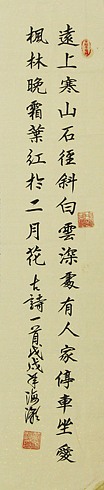 遠上寒山石徑斜白雲深處有人家停車坐愛
楓林晚霜葉紅於二月花 古詩一首戊戌年海